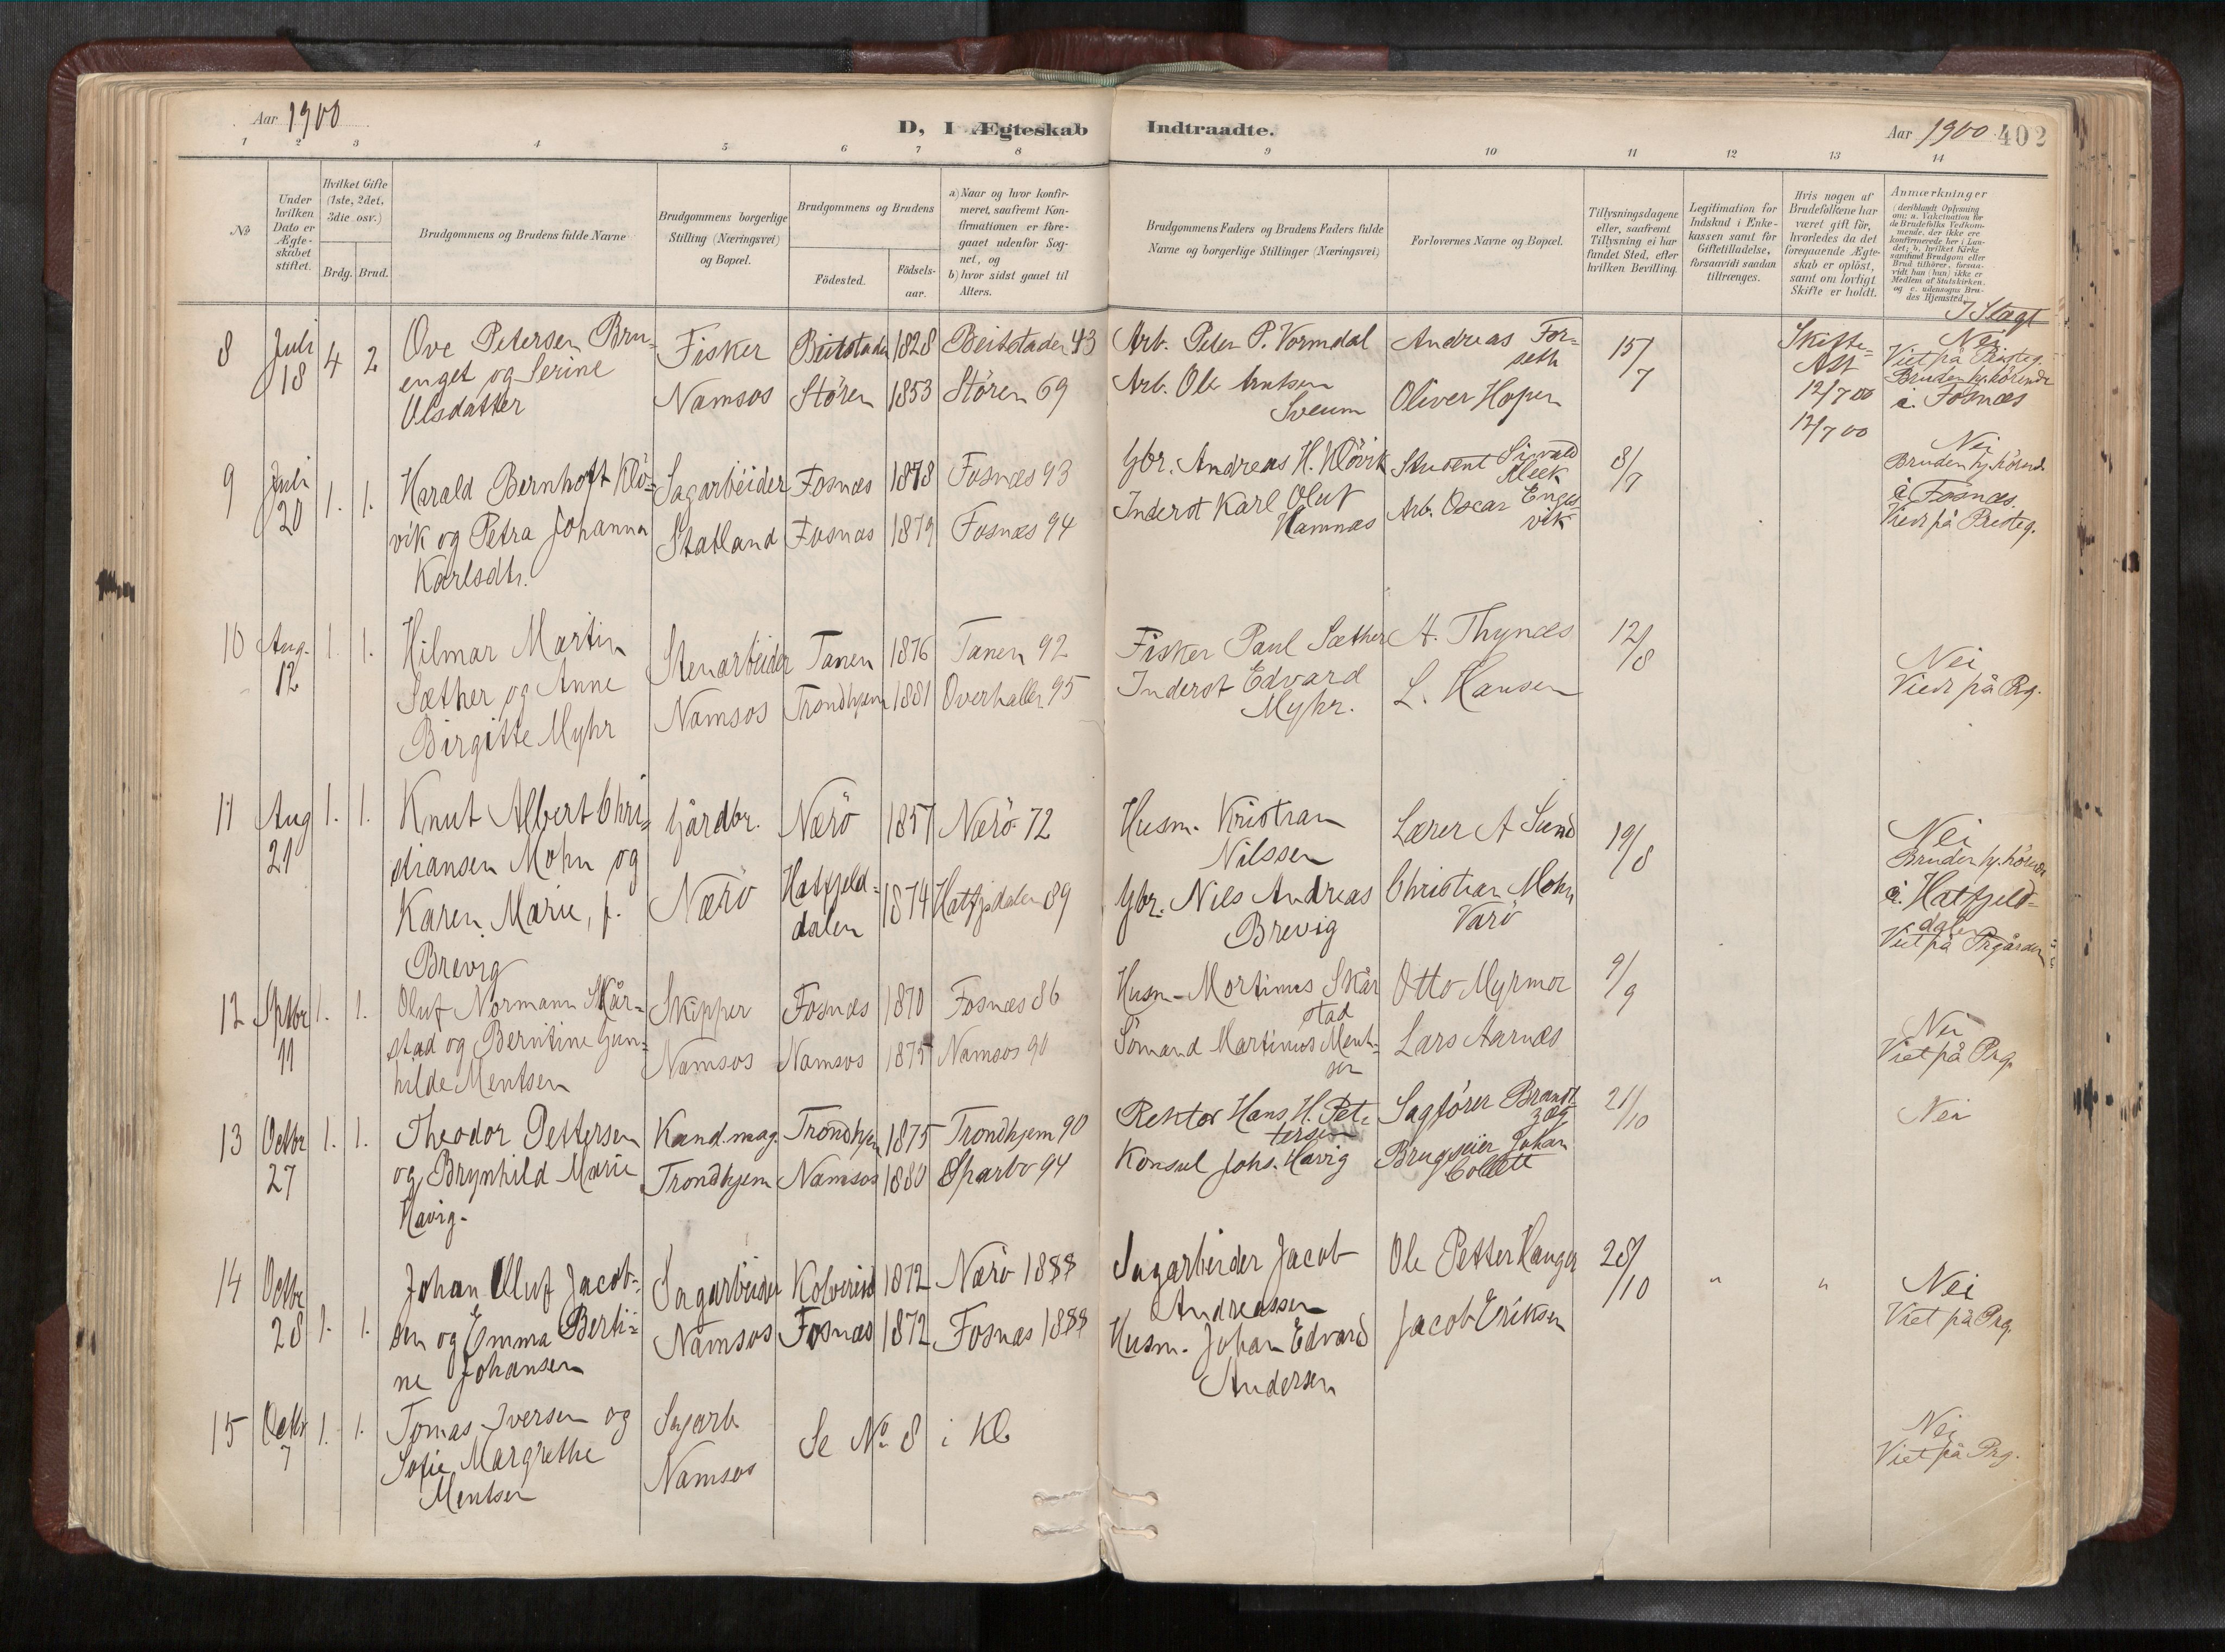 Aar 1900
D, I Ægteskab Indtraadte.
Aar 1900 402
1 2 3 4 5 6 7 8 9 10 11 12 13 14
No
Under
hvilken
Dato er
Ægte-
skabet
stiftet.
Hvilket Gifte
(1ste, 2det,
3die osv.)
Brdg. Brud.
Brudgommens og Brudens fulde Navne
Brudgommens borgerlige
Stilling (Næringsvei)
og Bopæl.
Brudgommens og Brudens
Födested.
Födsels-
aar.
a) Naar og hvor konfir-
meret, saafremt Kon-
firmationen er fore-
gaaet udenfor Sog-
net, og
b) hvor sidst gaaet til
Alters.
Brudgommens Faders og Brudens Faders fulde
Navne og borgerlige Stillinger (Næringsvei)
Forlovernes Navne og Bopæl.
Tillysningsdagene
eller, saafremt
Tillysning ei har
fundet Sted, efter
hvilken Bevilling.
Legitimation for
Indskud i Enke-
kassen samt for
Giftetilladelse,
forsaavidt saadan
tiltrænges.
Hvis nogen af
Brudefolkene har
været gift för,
hvorledes da det
foregaaende Ægte-
skab er oplöst,
samt om lovligt
Skifte er holdt.
Anmærkninger
(deriblandt Oplysning
om: a. Vakcination for
de Brudefolks Vedkom-
mende, der ikke ere
konfirmerede her i Lan-
det; b. hvilket Kirke-
samfund Brudgom eller
Brud tilhörer, forsaa-
vidt han (hun) ikke er
Medlem af Statskirken,
og c. udensogns Bru-
des Hjemsted.)
I Slægt
8 Juli 18 4 2
Ove Petersen Bru-
enget og Serine
Olsdatter
Fisker
Namsos
Beitstaden 1828 Beitstaden 43
Stören 1853 Stören 69
Arb. Peter P. Vormdal
Arb. Ole Arntsen
Sveum
Andreas For-
seth
Oliver Hopen
15/7
Skifte-
Att
12/7 00
12/7 00
Nei
Viet på Prsteg.
Bruden hj.hörende
i Fosnæs
9 Juli 20 1. 1.
Harald Bernhoft Klö-
vik og Petra Johanna
Karlsdtr.
Sagarbeider
Statland
Fosnæs 1878 Fosnæs 93
Fosnæs 1879 Fosnæs 94
Gbr. Andreas H. Klövik
Inderst Karl Oluf
Hamnæs
Student Sivald
Bleek
Arb. Oscar Enges-
vik
8/7
Nei
Bruden hj.hörend.
i Fosnæs.
Viedt på Presteg.
10 Aug. 12 1. 1.
Hilmar Martin
Sæther og Anne
Birgitte Myhr
Stenarbeider
Namsos
Tanen 1876 Tanen 92
Trondhjem 1881 Overhallen 95
Fisker Paul Sæther
Inderst Edvard
Myhr.
A. Thynæs
L. Hansen
12/8
Nei
Viedt på Prg.
11 Aug 21 1. 1.
Knut Albert Chri-
stiansen Mohn og
Karen Marie, f.
Brevig
Gårdbr.
Nærö
Nærö 1857 Nærö 72
Hatfjeld-
dalen 1874 Hatfjdalen 89
Husm. Kristian
Nilssen
Gbr. Nils Andreas
Brevig
Lærer A Sund
Christian Mohn
Varö
19/8
Nei
Bruden hj.hörende
i Hatfjeld-
dalen
Viet på Prgården
12 Sptbr 11 1. 1.
Oluf Normann Skår-
stad og Berntine Gun-
hilde Mentsen
Skipper
Namsos
Fosnæs 1870 Fosnæs 86
Namsos 1875 Namsos 90
Husm. Mortinus Skår
stad
Sömand Martinus Ment-
sen
Otto Myrmo
Lars Aarnæs
9/9
Nei
Viet på Prg.
13 Octbr 27 1. 1.
Theodor Pettersen
og Brynhild Marie
Havig.
Kand. mag.
Trondhjem
Trondhjem 1875 Trondhjem 90
Namsos 1880 Sparbo 94
Rektor Hans H. Pet-
tersen
Konsul Johs. Havig
Sagförer Brandt-
zæg
Brugseier Johan
Collett
21/10
Nei
14 Octbr 28 1. 1.
Johan Oluf Jacob-
sen og Emma Berti-
ne Johansen
Sagarbeider
Namsos
Kolvereid 1872 Nærö 1888
Fosnæs 1872 Fosnæs 1888
Sagarbeider Jacob
Andreassen
Husm. Johan Edvard
Andersen
Ole Petter Hauger
Jacob Eriksen
28/10
" "
Nei
Viet på Prg.
15 Octbr 7 1. 1.
Tomas Iversen og
Sofie Margrethe
Mentsen
Sagarb.
Namsos
Se No 8 i Kl.
Nei
Viet på Prg.